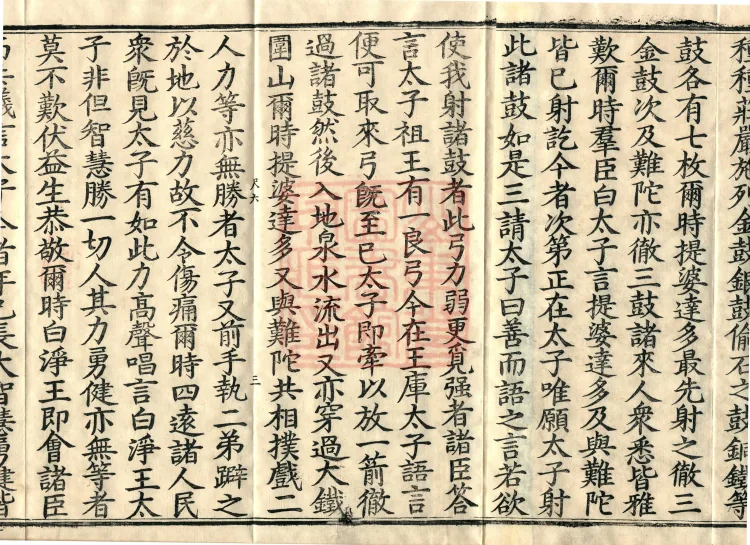 種種莊嚴施列金鼓銀鼓鍮石之鼓銅鐵等
鼓各有七枚爾時提婆達多最先射之徹三
金鼓次及難陀亦徹三鼓諸來人衆悉皆雅
歎爾時羣臣白太子言提婆達多及與難陀
皆已射訖今者次第正在太子唯願太子射
此諸鼓如是三請太子曰善而語之言若欲
使我射諸鼓者此弓力弱更覓强者諸臣答
言太子祖王有一良弓今在王庫太子語言
便可取來弓旣至已太子即牽以放一箭徹
過諸鼓然後入地泉水流出又亦穿過大鐵
圍山爾時提婆達多又與難陀共相撲戲二
尺六
三
人力等亦無勝者太子又前手執二弟躃之
於地以慈力故不令傷痛爾時四遠諸人民
衆旣見太子有如此力高聲唱言白淨王太
子非但智慧勝一切人其力勇健亦無等者
莫不歎伏益生恭敬爾時白淨王即會諸臣
言太子今者年已長大智慧勇健皆